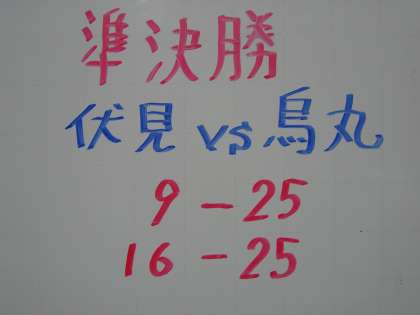 準決勝
伏見 vs 烏丸
9 - 25
16 - 25